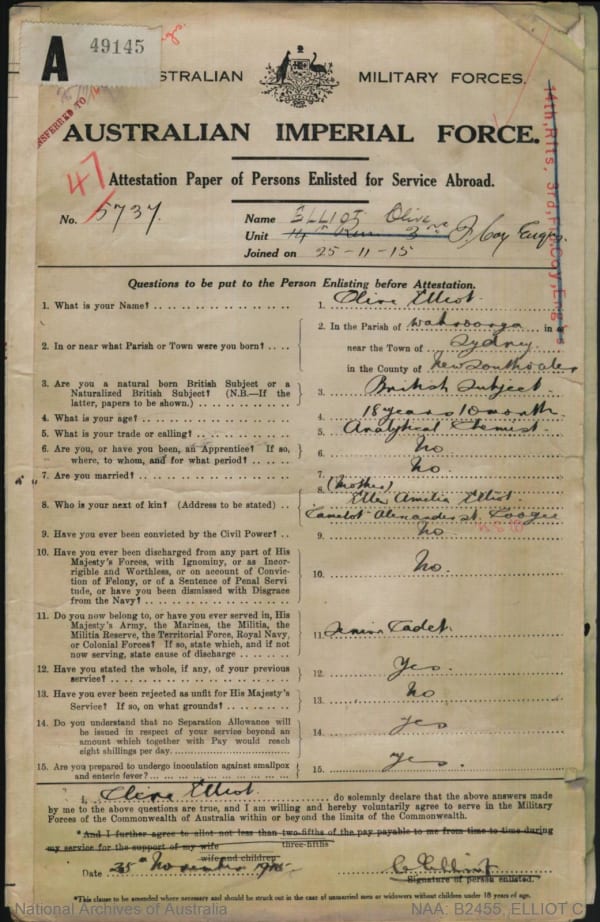 A 49145
AUSTRALIAN MILITARY FORCES.
TRANSFERRED TO
AUSTRALIAN IMPERIAL FORCE.
47
Attestation Paper of Persons Enlisted for Service Abroad.
No. 5737. Name ELLIOT Clive
Unit 3rd F. Coy Engrs.
Joined on 25-11-15
14th, Rfts, 3rd, F, Coy, Engrs
Questions to be put to the Person Enlisting before Attestation.
1. What is your Name? 1. Clive Elliot.
2. In or near what Parish or Town were you born? 2. In the Parish of Wahroonga in or
near the Town of Sydney.
in the County of New South Wales
3. Are you a natural born British Subject or a
Naturalized British Subject? (N.B.—If the
latter, papers to be shown.) 3. British Subject.
4. What is your age? 4. 18 years 10 month.
5. What is your trade or calling? 5. Analytical Chemist
6. Are you, or have you been, an Apprentice? If so,
where, to whom, and for what period? 6. No
7. Are you married? 7. No.
8. Who is your next of kin? (Address to be stated) 8. (Mother)
Ellen Amelia Elliot.
Camelot Alexander St. Coogee
N.S.W.
9. Have you ever been convicted by the Civil Power? 9. No.
10. Have you ever been discharged from any part of His
Majesty's Forces, with Ignominy, or as Incor-
rigible and Worthless, or on account of Convic-
tion of Felony, or of a Sentence of Penal Servi
tude, or have you been dismissed with Disgrace
from the Navy? 10. No.
11. Do you now belong to, or have you ever served in, His
Majesty's Army, the Marines, the Militia, the
Militia Reserve, the Territorial Force, Royal Navy,
or Colonial Forces? If so, state which, and if not
now serving, state cause of discharge 11. Senior Cadet.
12. Have you stated the whole, if any, of your previous
service? 12. Yes.
13. Have you ever been rejected as unfit for His Majesty's
Service? If so, on what grounds? 13. No
14. Do you understand that no Separation Allowance will
be issued in respect of your service beyond an
amount which together with Pay would reach
eight shillings per day. 14. yes
15. Are you prepared to undergo inoculation against smallpox
and enteric fever? 15. yes.
I, Clive Elliot. do solemnly declare that the above answers made
by me to the above questions are true, and I am willing and hereby voluntarily agree to serve in the Military
Forces of the Commonwealth of Australia within or beyond the limits of the Commonwealth.
*And I further agree to allot not less than two-fifths of the pay payable to me from time to time during
three-fifths
my service for the support of my wife
wife and children
Date 25th November 1915. C. Elliot
Signature of person enlisted.
*This clause to be amended where necessary and should be struck out in the case of unmarried men or widowers without children under 18 years of age.
National Archives of Australia NAA: B2455, ELLIOT C